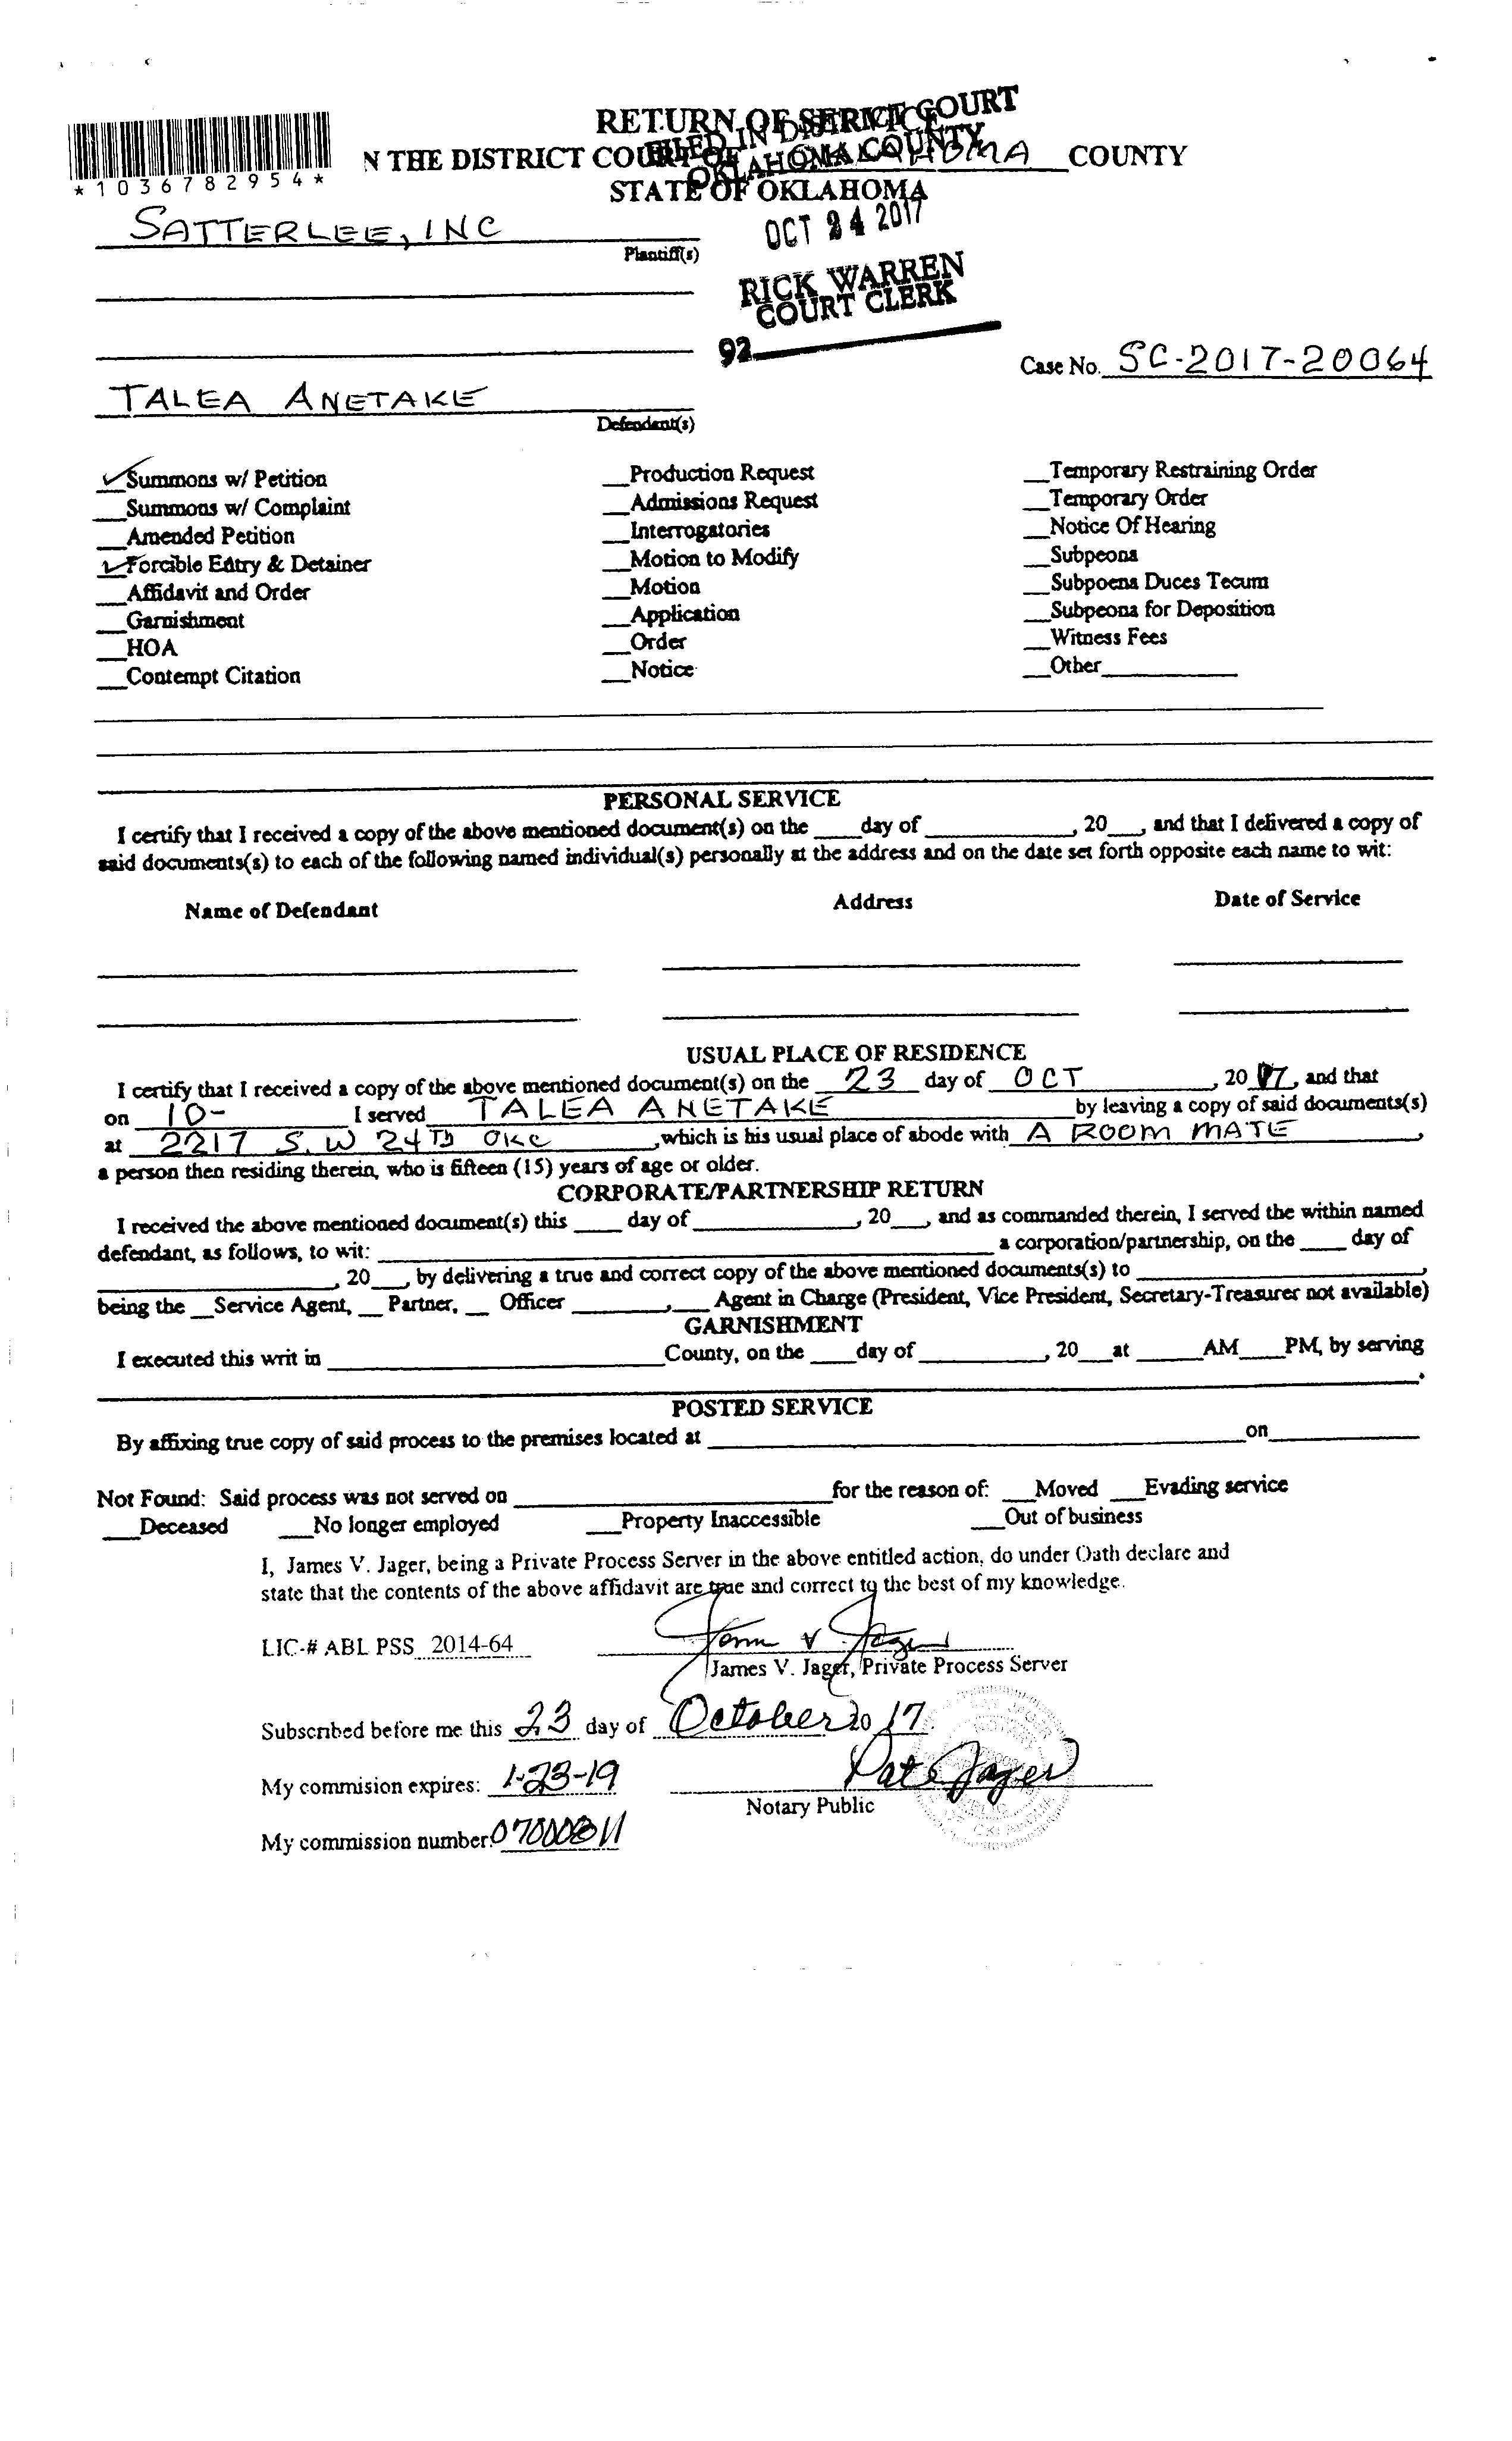 RETURN OF SERVICE
FILED IN DISTRICT COURT
OKLAHOMA COUNTY
N THE DISTRICT COURT OF OKLAHOMA COUNTY
*1036782954*
STATE OF OKLAHOMA
SATTERLEE, INC
OCT 24 2017
Plantiff(s)
RICK WARREN
COURT CLERK
92
Case No. SC-2017-20064
TALEA ANETAKE
Defendant(s)
✓Summons w/ Petition __Production Request __Temporary Restraining Order
__Summons w/ Complaint __Admissions Request __Temporary Order
__Amended Petition __Interrogatories __Notice Of Hearing
✓Forcible Entry & Detainer __Motion to Modify __Subpeona
__Affidavit and Order __Motion __Subpoena Duces Tecum
__Garnishment __Application __Subpeona for Deposition
__HOA __Order __Witness Fees
__Contempt Citation __Notice __Other
PERSONAL SERVICE
I certify that I received a copy of the above mentioned document(s) on the ____day of ____________, 20___, and that I delivered a copy of
said documents(s) to each of the following named individual(s) personally at the address and on the date set forth opposite each name to wit:
Name of Defendant Address Date of Service
USUAL PLACE OF RESIDENCE
I certify that I received a copy of the above mentioned document(s) on the 23 day of OCT, 2017, and that
on 10- I served TALEA ANETAKE by leaving a copy of said documents(s)
at 2217 S.W 24TH OKC, which is his usual place of abode with A ROOM MATE,
a person then residing therein, who is fifteen (15) years of age or older.
CORPORATE/PARTNERSHIP RETURN
I received the above mentioned document(s) this ____ day of ____________, 20___, and as commanded therein, I served the within named
defendant, as follows, to wit: ____________ a corporation/partnership, on the ____ day of
____________, 20___, by delivering a true and correct copy of the above mentioned documents(s) to ____________,
being the __Service Agent, __ Partner, __ Officer ________,___ Agent in Charge (President, Vice President, Secretary-Treasurer not available)
GARNISHMENT
I executed this writ in ____________County, on the ____day of ____________, 20___at ______AM____PM, by serving
____________.
POSTED SERVICE
By affixing true copy of said process to the premises located at ____________on____________
Not Found: Said process was not served on ____________for the reason of: ___Moved ___Evading service
___Deceased ___No longer employed ___Property Inaccessible ___Out of business
I, James V. Jager, being a Private Process Server in the above entitled action, do under Oath declare and
state that the contents of the above affidavit are true and correct to the best of my knowledge.
LIC-# ABL PSS 2014-64
James V. Jager, Private Process Server
Subscribed before me this 23 day of October 20 17.
My commision expires: 1-23-19 Pat Jager
Notary Public
My commission number: 07000811